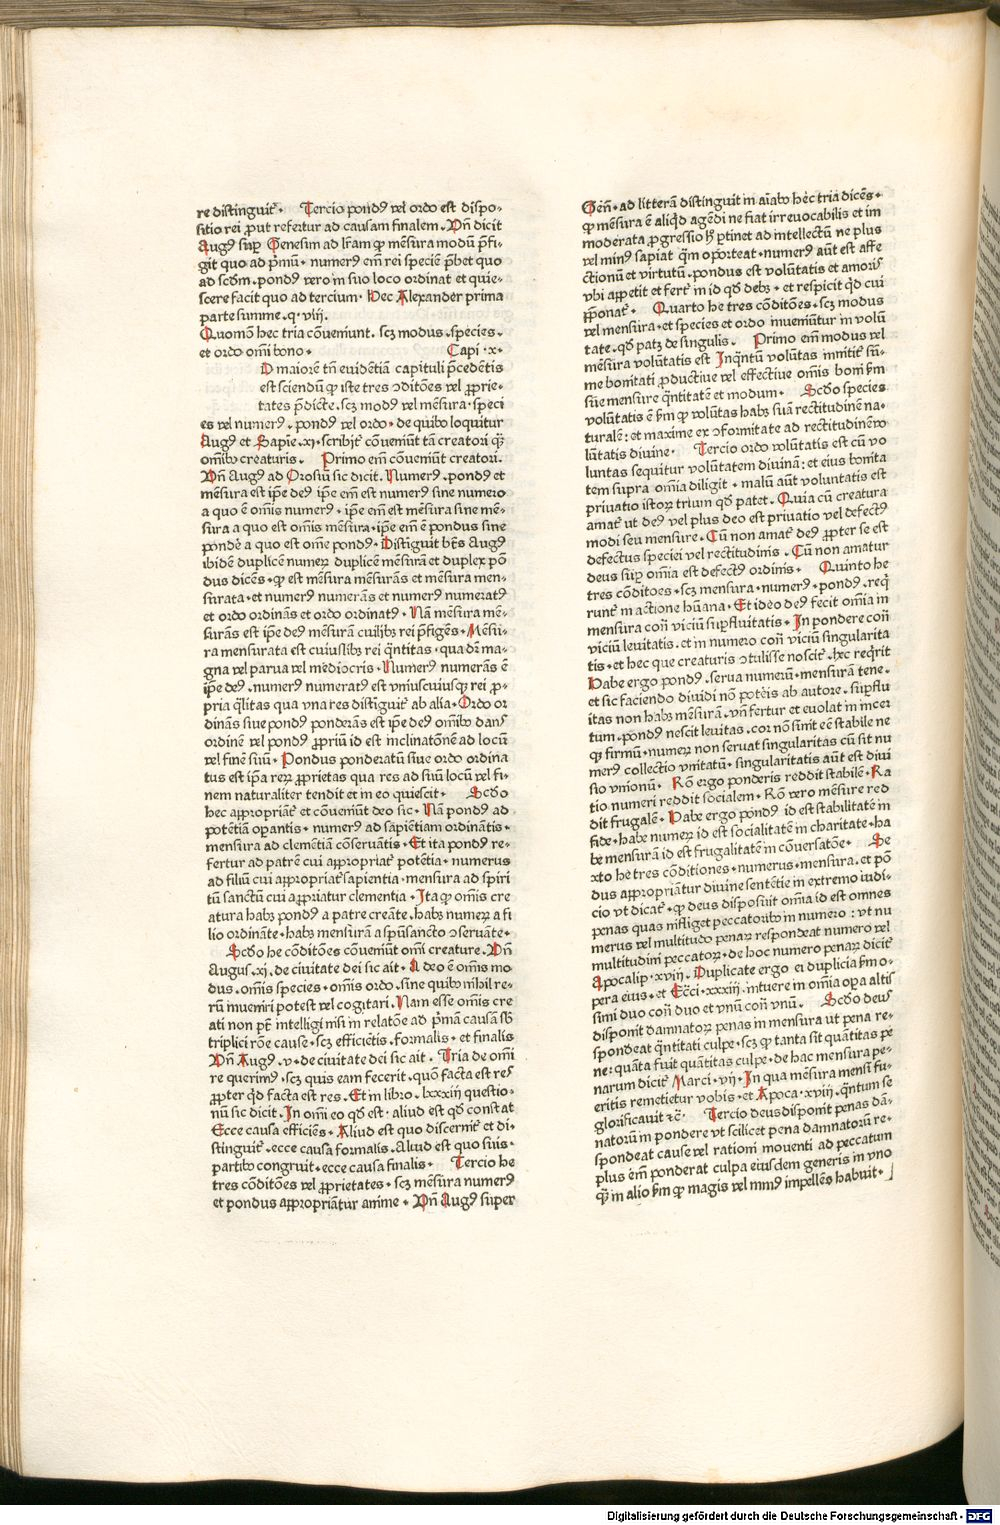 re distinguit᷒. Tercio pondꝰ vel ordo est dispo-
sitio rei ꝓut refertur ad causam finalem. Vn̄ dicit
Augꝰ suꝑ Genesim ad lr̄am ꝙ mensura modū p̄fi-
git quo ad pͥmū. numerꝰ em̄ rei speciē p̄bet quo
ad scd̄m. pondꝰ vero in suo loco ordinat et quie-
scere facit quo ad tercium. Hec Alexander prima
parte summe .q. vlij.
Quomō hec tria cōveniunt. scꝫ modus. species.
et ordo om̄i bono. Capi .x.
D maiorē tn̄ evidentiā capituli p̄cedentis
est sciendū ꝙ iste tres ↄditōes vel ꝓprie-
tates p̄dicte. scꝫ modꝰ vel mēsura. speci
es vel numerꝰ. pondꝰ vel ordo. de quibꝰ loquitur
Augꝰ et Sapie .xi. scribit᷒ cōveniūt tā creatori qꝫ̄
om̄ibꝰ creaturis. Primo em̄ cōveniūt creatori.
Vn̄ Augꝰ ad Orosiū sic dicit. Numerꝰ. pondꝰ et
mēsura est ip̄e deꝰ ip̄e em̄ est numerꝰ sine numero
a quo ē om̄is numerꝰ. ip̄e em̄ est mēsura sine mē-
sura a quo est om̄is mēsura. ip̄e em̄ ē pondus sine
pondē a quo est om̄e pondꝰ. Distiguit btūs Augꝰ
ibidē duplicē numerꝝ duplicē mēsurā et duplex pō
dus dicēs. ꝙ est mēsura mēsurās et mēsura men-
surata. et numerꝰ numerās et numerꝰ numeratꝰ
et ordo ordinās et ordo ordinatꝰ. Nā mēsura mē-
surās est ip̄e deꝰ mēsurā cuilibꝫ rei p̄figēs. Mēsu-
ra mensurata est cuiuslibꝫ rei qn̄titas. qua dr̄ ma-
gna vel parua vel mediocris. Numerꝰ numerās ē
ip̄e deꝰ. numerꝰ numeratꝰ est vniuscuiusqꝫ rei ꝓ-
pria qͣlitas qua vna res distiguit᷒ ab alia. Ordo or
dinās siue pondꝰ ponderās est ip̄e deꝰ om̄ibꝰ dans
ordinē vel pondꝰ ꝓpriū id est inclinatōnē ad locū
vel finē suū. Pondus ponderatū siue ordo ordina
tus est ip̄a rerꝝ ꝓprietas qua res ad suū locū vel fi-
nem naturaliter tendit et in eo quiescit. Scd̄o
hec apꝓpriāt᷒ et cōveniūt deo sic. Nā pondꝰ ad
potētiā opantis. numerꝰ ad sapiētiam ordināntis.
mensura ad clemētiā cōservātis. Et ita pondꝰ re-
fertur ad patrē cui apꝓpriat᷒ potētia. numerus
ad filiū cui apꝓpriat᷒ sapientia. mensura ad spiri
tū sanctū cui apꝓpriatur clementia. Ita ꝙ om̄is cre
atura habꝫ pondꝰ a patre creāte. habꝫ numerꝝ a fi
lio ordināte. habꝫ mensurā a spūsancto ↄservāte.
Scd̄o he cōditōes cōveniūt om̄i creature. Vn̄
Augus. xi. de ciuitate dei sic ait. A deo ē om̄is mo
dus. om̄is species. om̄is ordo. sine quibꝰ nihil re-
rū inueniri potest vel cogitari. Nam esse om̄is cre
ati non pt̄ intelligi nisi in relatōe ad pͥmā causā sb̄
triplici rōe cause. scꝫ efficiētis. formalis. et finalis
Vn̄ Augꝰ. v. de ciuitate dei sic ait. Tria de om̄i
re querimꝰ. scꝫ quis eam fecerit. quō facta est res
ꝓpter qd̄ facta est res. Et in libro. lxxxiij questio-
nū sic dicit. In om̄i eo qd̄ est. aliud est qd̄ constat
Ecce causa efficiēs. Aliud est quo discernit᷒ et di-
stinguit᷒. ecce causa formalis. Aliud est quo suis.
partibꝰ congruit. ecce causa finalis. Tercio he
tres cōditōes vel ꝓprietates. scꝫ mēsura numerꝰ
et pondus apꝓpriātur anime. Vn̄ Augꝰ super
Gen̄. ad litterā distinguit in aīabꝰ hec tria dicēs.
ꝙ mēsura ē aliqd̄ agēdi ne fiat irreuocabilis et im
moderata ꝓgressio hꝫ ꝑtinet ad intellectū ne plus
vel minꝰ sapiat qm̄ oporteat. numerꝰ aūt est affe
ctionū et virtutū. pondus est volūtatis et amoris
vbi appetit et fert᷒ in id qd̄ debꝫ. et respicit qd̄ cui
ꝓponat᷒. Quarto he tres cōditōes. scꝫ modus
vel mensura. et species et ordo inueniūtur in volū
tate. qd̄ patꝫ de singulis. Primo em̄ modus vel
mēsura volūtatis est Inqn̄tū volūtas innitit᷒ sū-
me bonitati ꝓductiue vel effectiue om̄is boni ẜm
sue mensure qn̄titatē et modum. Scd̄o species
volūtatis ē ẜm ꝙ volūtas habꝫ suā rectitudinē na-
turalē: et maxime ex ↄformitate ad rectitudinē vo
lūtatis diuine. Tercio ordo volūtatis est cū vo
luntas sequitur volūtatem diuinā: et eius bonita
tem supra om̄ia diligit. malū aūt voluntatis est
priuatio istorꝝ trium qd̄ patet. Quia cū creatura
amat᷒ ut deꝰ vel plus deo est priuatio vel defectꝰ
modi seu mensure. Cū non amat᷒ deꝰ ꝓpter se est
defectus speciei vel rectitudinis. Cū non amatur
deus suꝑ om̄ia est defectꝰ ordinis. Quinto he
tres cōditōes. scꝫ mensura. numerꝰ. pondꝰ. reqͥ
runt᷒ in actione hūana. Et ideo deꝰ fecit om̄ia in
mensura con̄ viciū suꝑfluitatis. In pondere con̄
viciū leuitatis. et in numero con̄ viciū singularita
tis. et hec que creaturis ↄtulisse noscit᷒. hec reqͥrit
Habe ergo pondꝰ. serua numerū. mensurā tene.
et sic faciendo diuidi nō poteis ab autore. suꝑflu
itas non habꝫ mēsurā. vn̄ fertur et euolat in incer
tum. pondꝰ nescit leuitas. cor nō sinit eē stabile ne
qꝫ firmū. numerꝝ non seruat singularitas cū sit nu
merꝰ collectio vnitatū. singularitatis aūt est diui
sio vnionū. Rō ergo ponderis reddit stabilē. Ra
tio numeri reddit socialem. Rō vero mēsure red
dit frugalē. Habe ergo pondꝰ id est stabilitatē in
fide. habe numerꝝ id est socialitatē in charitate. ha
be mensurā id est frugalitatē in cōuersatōe. Se
xto he tres cōditiones. numerus. mensura. et pō
dus apꝓpriātur diuine sentētie in extremo iudi-
cio vt dicat᷒. ꝙ deus disposuit omia id est omnes
penas quas infliget peccatoribꝰ in numero: vt nu
merus vel multitudo penarꝝ respondeat numero vel
multitudini peccatorꝝ. de hoc numero penarꝝ dicit᷒
Apocalip. xviij. Duplicate ergo ei duplicia ẜm o-
pera eius. et Ecci. xxxiij. intuere in om̄ia opa altis
simi duo con̄ duo et vnū con̄ vnū. Scd̄o deus
disponit damnatorꝝ penas in mensura ut pena re-
spondeat qn̄titati culpe. scꝫ ꝙ tanta sit quātitas pe
ne: quāta fuit quātitas culpe. de hac mensura pe-
narum dicit᷒ Marci. vij. In qua mēsura mensi fu-
eritis remetietur vobis. et Apoca. xviij. qn̄tum se
glorificauit ⁊c̄. Tercio deus disponit penas dā-
natorū in pondere vt scilicet pena damnatorū re-
spondeat cause vel rationi mouenti ad peccatum
plus em̄ ponderat culpa eiusdem generis in vno
qꝫ̄ in alio ẜm ꝙ magis vel minꝰ impellēs habuit.
Digitalisierung gefördert durch die Deutsche Forschungsgemeinschaft - DFG